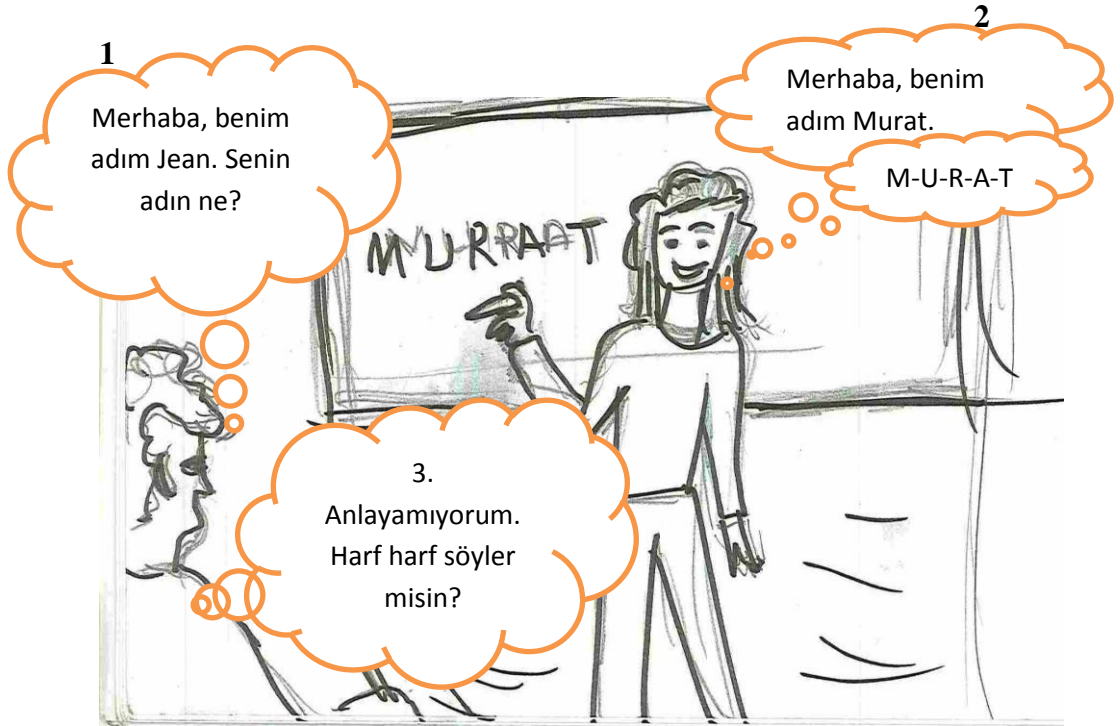 1
Merhaba, benim
adım Jean. Senin
adın ne?
2
Merhaba, benim
adım Murat.
M-U-R-A-T
M U-R-RAAT
3.
Anlayamıyorum.
Harf harf söyler
misin?